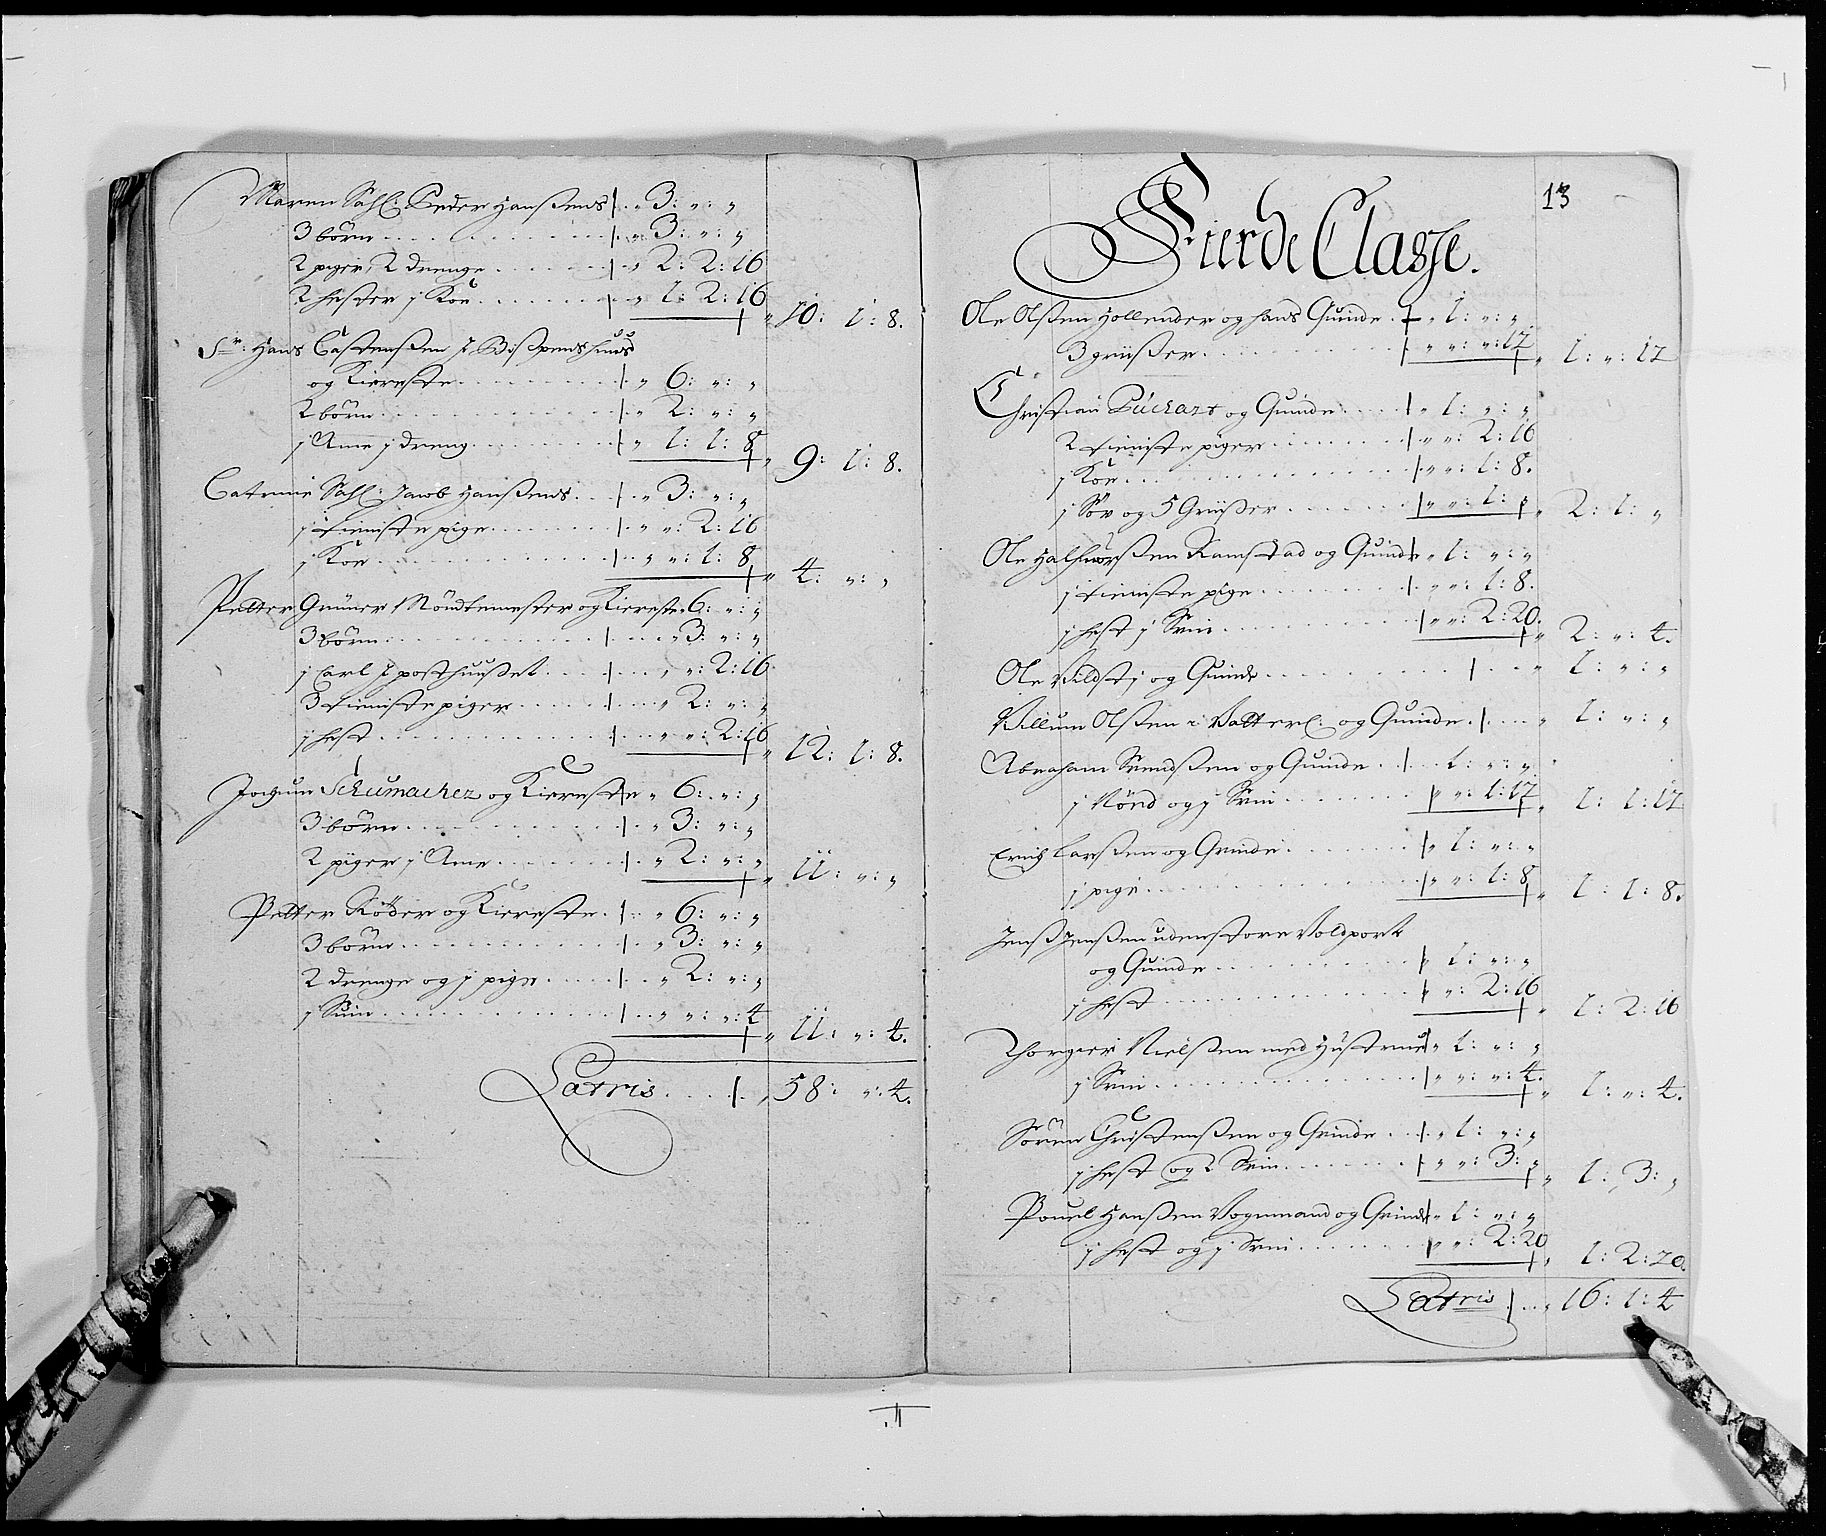 Maren Sahl: Peder Hanßens . . 3: „: „
3 börn . . . 3: „: „
2 piger, 2 drenge . . . 2: 2: 16
2 hester j Koe . . . 1: 2: 16
„ 10: 1: 8.
Sr: Hans Castenßen J Bißpens huus
og Kiereste . . . „ 6: „: „
2 börn . . . „ 2: „: „
j Ame j dreng . . . „ 1: 1: 8
„ 9: 1: 8.
Catrine Sahl: Jacob Hanßens . . „ 3: „: „
j tieniste pige . . . „ „: 2: 16
j Koe . . . „ „: 1: 8
„ 4: „: „
Petter Grüner Möndtemester og Kiereste 6: „: „
3 börn . . . „ 3: „: „
j Carl J posthuußet . . . „: 2: 16
3 tieniste piger . . . „ 2: „: „
j hest . . . „ „: 2: 16
„ 12: 1: 8.
Jochum Schumacher og Kiereste „ 6: „: „
3 börn . . . „ 3: „: „
2 piger j Ame . . . „ 2: „: „
„ 11: „: „
Petter Röder og Kiereste . . „ 6: „: „
3 börn . . . „ 3: „: „
2 drenge og j pige . . . „ 2: „: „
j Suin . . . „ „: „: 4
„ 11: „: 4.
Latris . . . „ 58: „: 4.
13
Fierde Classe.
Ole Olßen Hollender og hans Quinde . „ 1: „: „
3 grüßer . . . „ „: „: 17
„ 1: „: 17
Christian og Quinde . . . „ 1: „: „
2 tieniste piger . . . „ „: 2: 16
j Koe . . . „ „: 1: 8.
j Söv og 5 Grüßer . . . „ „: 1: „
„ 2: 1: „
Ole Halfworßen Ramstad og Quinde „ 1: „: „
j tieniste pige . . . „ „: 1: 8.
j hest j Svin . . . „ „: 2: 20.
„ 2: „: 4.
Ole og Quinde . . . „ 1: „: „
Villum Olßen og Quinde . . . „ 1: „: „
Abraham Svendßen og Quinde . . . 1: „: „
j Nönd og j Svin . . . „ „: 1: 17
„ 1: 1: 17
Erich Larßen og Qvinde . . . „ 1: „: „
j pige . . . „ „: 1: 8
„ 1: 1: 8.
Jenß Jenßen udenfore Voldport
og Quinde . . . „ 1: „: „
j hest . . . „ „: 2: 16
„ 1: 2: 16
Thorgier Nielßen med Hustrue „ 1: „: „
j Svin . . . „ „: „: 4.
„ 1: „: 4.
Sören Christenßen og Qvinde . . „ 1: „: „
j hest og 2 Svin . . . „ „: 3: „
„ 1: 3: „
Pouel Hanßen Vognmand og Qvinde „ 1: „: „
j hest og j Svin . . . „ „: 2: 20
„ 1: 2: 20.
Latris . . „ 16: 1: 4